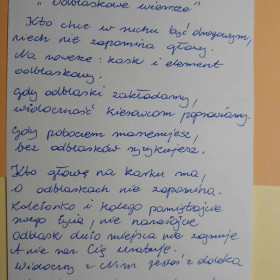 "Odblaskowe wiersze"
Kto chce w ruchu być drogowym,
niech nie zapomina głowy.
Na rowerze: kask i element
odblaskowy.
Gdy odblaski zakładamy,
widoczność kierowcom poprawiamy.
Gdy poboczem maszerujesz,
bez odblasków ryzykujesz.
Kto głowę na karku ma,
o odblaskach nie zapomina.
Koleżanko i kolego pamiętajcie
swego życia, nie narażajcie
Odblask dużo miejsca nie zajmuje
A nie raz Cię uratuje.
Widoczny z Nim jesteś z daleka